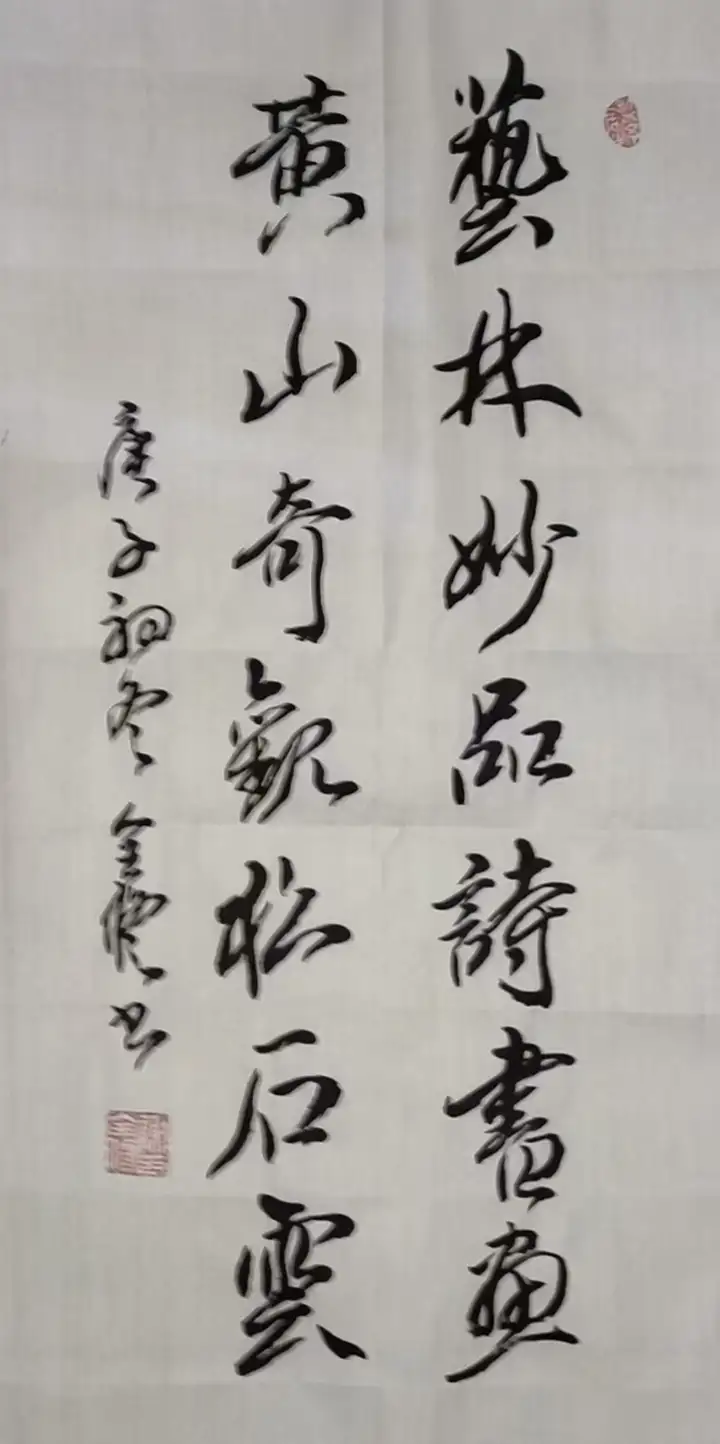 藝林妙品詩書畫
黃山奇觀松石雲
庚子初冬金體书